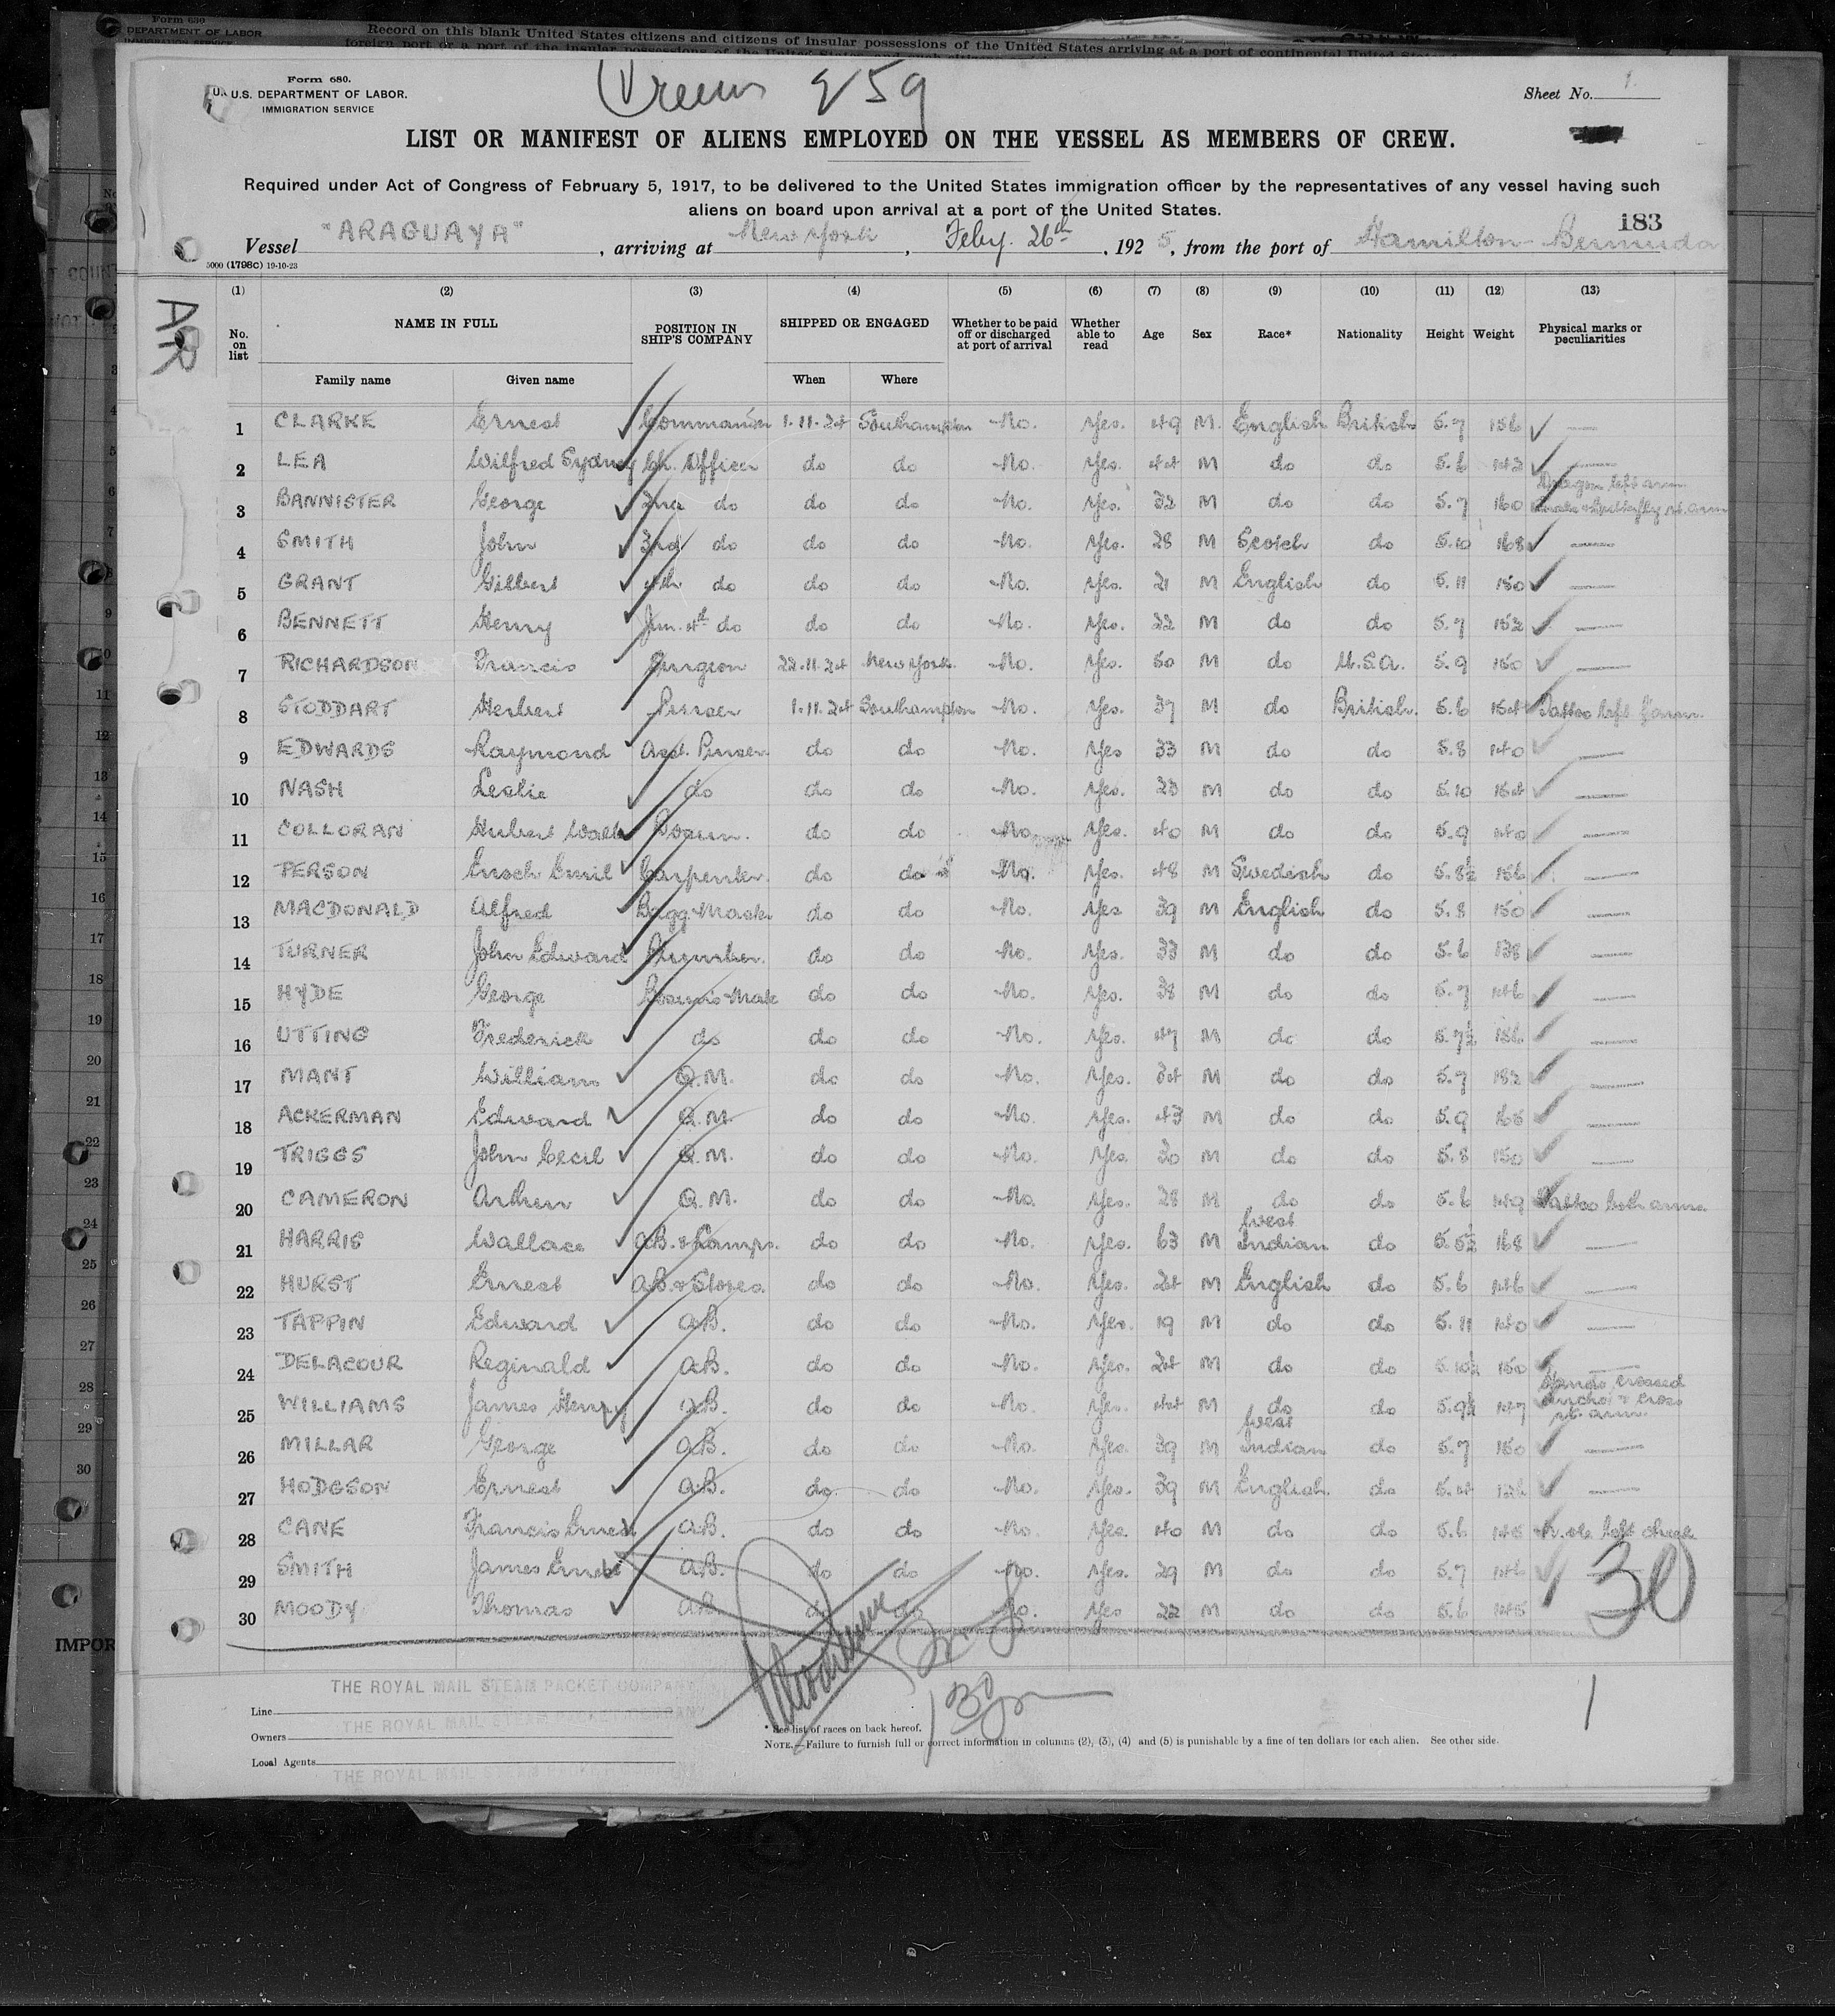 Form 630
DEPARTMENT OF LABOR
Record on this blank United States citizens and citizens of insular possessions of the United States arriving at a port of continental United
Form 680.
U.S. DEPARTMENT OF LABOR.
IMMIGRATION SERVICE
259
Sheet No. 1.
LIST OR MANIFEST OF ALIENS EMPLOYED ON THE VESSEL AS MEMBERS OF CREW.
Required under Act of Congress of February 5, 1917, to be delivered to the United States immigration officer by the representatives of any vessel having such
aliens on board upon arrival at a port of the United States.
183
Vessel "ARAGUAYA", arriving at New York, Feby. 26th, 1925, from the port of Hamilton Bermuda
5000 (1798C) 19-10-23
AR
(1) (2) (3) (4) (5) (6) (7) (8) (9) (10) (11) (12) (13)
No. on list NAME IN FULL POSITION IN SHIP'S COMPANY SHIPPED OR ENGAGED Whether to be paid off or discharged at port of arrival Whether able to read Age Sex Race* Nationality Height Weight Physical marks or peculiarities
Family name Given name When Where
1 CLARKE Ernest Commander 1.11.24 Southampton No. Yes. 49 M. English British 5.7 156
2 LEA Wilfred Sydney Ch. Officer do do No. Yes. 44 M do do 5.6 142
3 BANNISTER George 2nd do do do No. Yes. 32 M do do 5.7 160 Dragon left arm Snake & Butterfly rt. arm
4 SMITH John 3rd do do do No. Yes. 28 M Scotch do 5.10 168
5 GRANT Gilbert 4th do do do No. Yes. 21 M English do 5.11 150
6 BENNETT Henry Jun. 4th do do do No. Yes. 22 M do do 5.7 152
7 RICHARDSON Francis Surgeon 22.11.24 New York. No. Yes. 50 M do U.S.A. 5.9 150
8 STODDART Herbert Purser 1.11.24 Southampton No. Yes. 37 M do British. 5.6 154 Tattoo left f'arm
9 EDWARDS Raymond Asst. Purser do do No. Yes 33 M do do 5.8 140
10 NASH Leslie do do do No. Yes. 23 M do do 5.10 154
11 COLLORAN Hubert Bosun. do do No. Yes. 40 M do do 5.9 140
12 PERSON Emil Carpenter. do do No. Yes. 48 M Swedish do 5.8½ 156
13 MACDONALD Alfred Bagg. Master do do No. Yes 39 M English do 5.8 150
14 TURNER John Edward Plumber. do do No. Yes. 33 M do do 5.6 138
15 HYDE George Bosun's Mate do do No. Yes. 38 M do do 5.7 146
16 UTTING Frederick do do do No. Yes. 47 M do do 5.7½ 186
17 MANT William Q.M. do do No. Yes. 34 M do do 5.7 182
18 ACKERMAN Edward Q.M. do do No. Yes. 43 M do do 5.9 165
19 TRIGGS John Cecil Q.M. do do No. Yes. 30 M do do 5.8 150
20 CAMERON Arthur Q.M. do do No. Yes. 28 M do do 5.6 149 Tattoo both arms
21 HARRIS Wallace A.B. & Lamps. do do No. Yes. 63 M West Indian do 5.5½ 168
22 HURST Ernest A.B. & Stores. do do No. Yes. 24 M English do 5.6 146
23 TAPPIN Edward A.B. do do No. Yes. 19 M do do 5.11 140
24 DELACOUR Reginald A.B. do do No. Yes. 24 M do do 5.10½ 150
25 WILLIAMS James Henry A.B. do do No. Yes. 44 M do do 5.9½ 147 Hands crossed anchor & cross rt. arm
26 MILLAR George A.B. do do No. Yes. 39 M West Indian do 5.7 150
27 HODGSON Ernest A.B. do do No. Yes. 39 M English. do 5.4 126
28 CANE Francis Ernest A.B. do do No. Yes. 40 M do do 5.6 145 left cheek
29 SMITH James Ernest A.B. do do No. Yes. 29 M do do 5.7 146
30 MOODY Thomas A.B. do do No. Yes 22 M do do 5.6 145
30
THE ROYAL MAIL STEAM PACKET COMPANY
Line
THE ROYAL MAIL STEAM PACKET COMPANY
Owners
Local Agents
THE ROYAL MAIL STEAM PACKET COMPANY
1
* See list of races on back hereof.
NOTE.—Failure to furnish full or correct information in columns (2), (3), (4) and (5) is punishable by a fine of ten dollars for each alien. See other side.
IMPOR